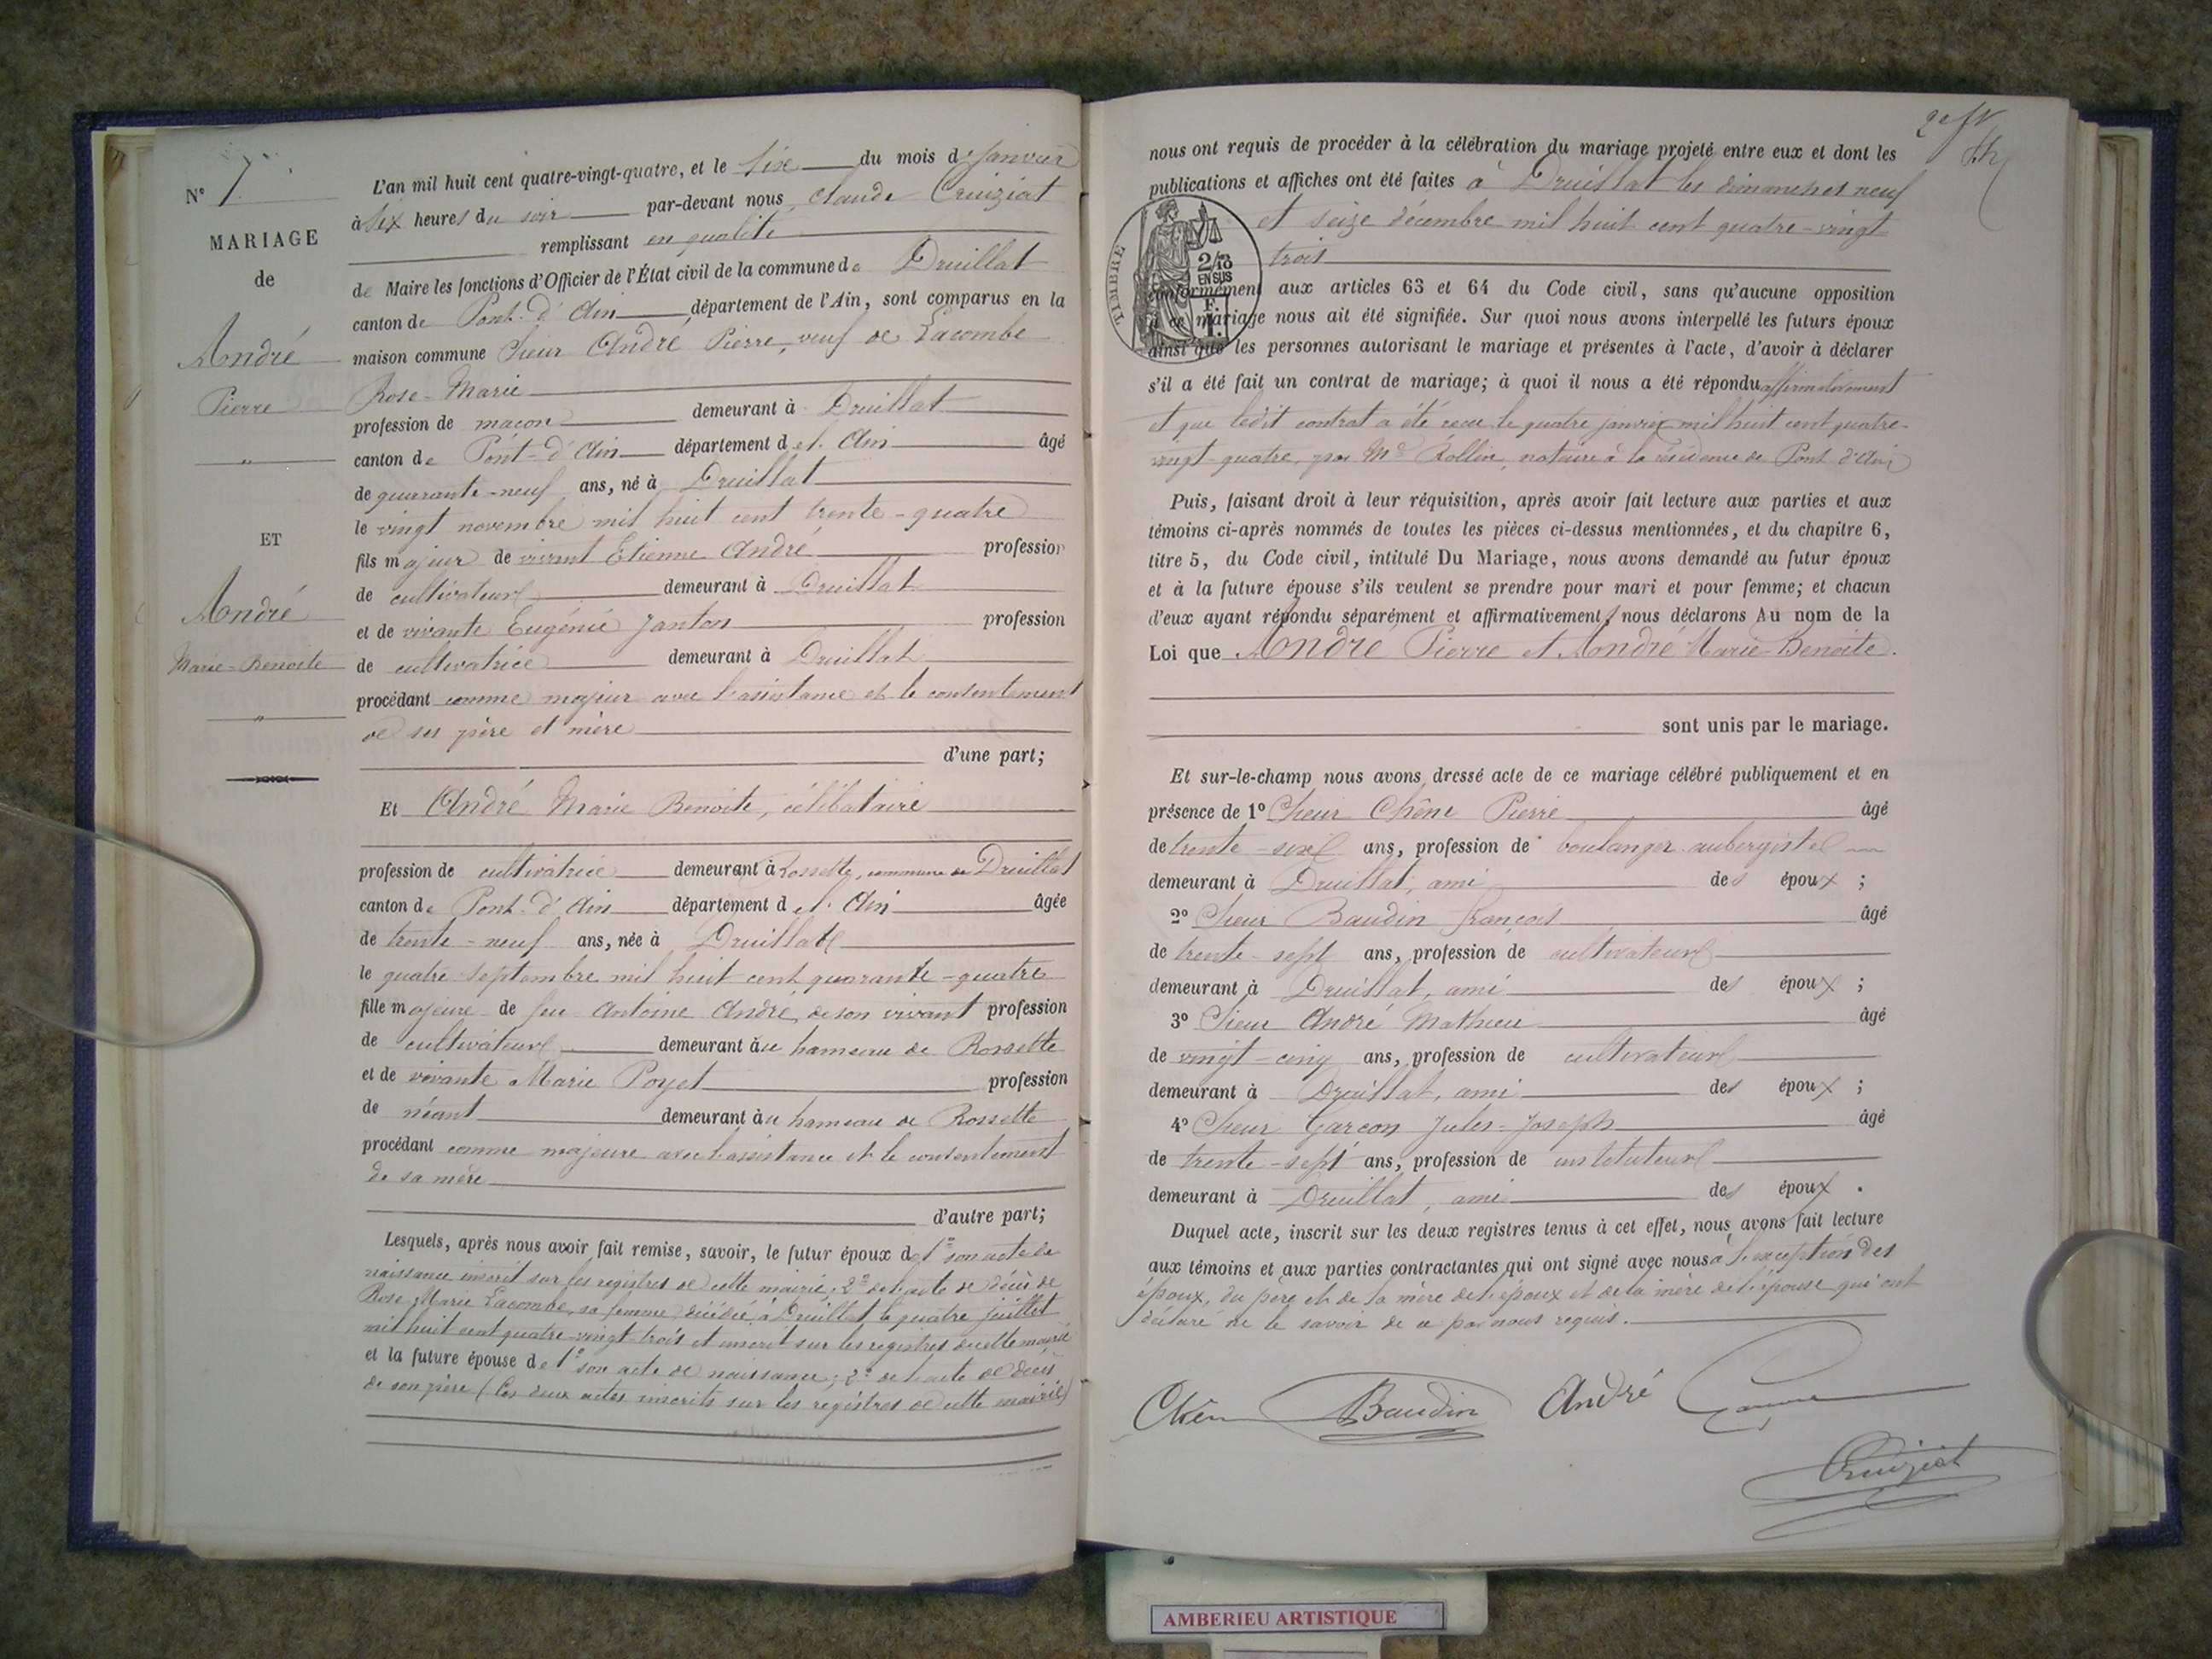 N° 1
MARIAGE
de
André
Pierre
"
ET
André
Marie-Benoite
"
L'an mil huit cent quatre-vingt-quatre, et le six du mois de Janvier
à six heures du soir par-devant nous, Claude Cruiziat
remplissant en qualité
de Maire les fonctions d'Officier de l'État civil de la commune de Druillat
canton de Pont-d'Ain département de l'Ain, sont comparus en la
maison commune Sieur André Pierre, veuf de Lacombe
Rose-Marie
profession de maçon demeurant à Druillat
canton de Pont-d'Ain département de l'Ain âgé
de quarante-neuf ans, né à Druillat
le vingt novembre mil huit cent trente-quatre
fils majeur de vivant Etienne André profession
de cultivateur demeurant à Druillat
et de vivante Eugénie Janton profession
de cultivatrice demeurant à Druillat
procédant comme majeur avec l'assistance et le consentement
de ses père et mère
d'une part;
Et André Marie Benoite, célibataire
profession de cultivatrice demeurant à Rossette, commune de Druillat
canton de Pont-d'Ain département de l'Ain âgée
de trente-neuf ans, née à Druillat
le quatre septembre mil huit cent quarante-quatre
fille majeure de feu Antoine André, de son vivant profession
de cultivateur demeurant au hameau de Rossette
et de vivante Marie Poyet profession
de néant demeurant au hameau de Rossette
procédant comme majeure avec l'assistance et le consentement
de sa mère
d'autre part;
Lesquels, après nous avoir fait remise, savoir, le futur époux de 1° son acte de
naissance inscrit sur les registres de cette mairie; 2° de l'acte de décès de
Rose Marie Lacombe, sa femme, décédée à Druillat le quatre juillet
mil huit cent quatre-vingt-trois et inscrit sur les registres de cette mairie
et la future épouse de 1° son acte de naissance; 2° de l'acte de décès
de son père (les deux actes inscrits sur les registres de cette mairie)
nous ont requis de procéder à la célébration du mariage projeté entre eux et dont les
publications et affiches ont été faites à Druillat les dimanches neuf
et seize décembre mil huit cent quatre-vingt
trois
TIMBRE
2/10
EN SUS
conformément aux articles 63 et 64 du Code civil, sans qu'aucune opposition
à ce mariage nous ait été signifiée. Sur quoi nous avons interpellé les futurs époux
ainsi que les personnes autorisant le mariage et présentes à l'acte, d'avoir à déclarer
s'il a été fait un contrat de mariage; à quoi il nous a été répondu affirmativement
et que ledit contrat a été reçu le quatre janvier mil huit cent quatre-
vingt-quatre, par Me Rollin, notaire à la résidence de Pont d'Ain
Puis, faisant droit à leur réquisition, après avoir fait lecture aux parties et aux
témoins ci-après nommés de toutes les pièces ci-dessus mentionnées, et du chapitre 6,
titre 5, du Code civil, intitulé Du Mariage, nous avons demandé au futur époux
et à la future épouse s'ils veulent se prendre pour mari et pour femme; et chacun
d'eux ayant répondu séparément et affirmativement, nous déclarons Au nom de la
Loi que André Pierre et André Marie-Benoite.
sont unis par le mariage.
Et sur-le-champ nous avons dressé acte de ce mariage célébré publiquement et en
présence de 1° Sieur Chêne Pierre âgé
de trente-six ans, profession de boulanger aubergiste
demeurant à Druillat, ami des époux ;
2° Sieur Baudin François âgé
de trente-sept ans, profession de cultivateur
demeurant à Druillat, ami des époux ;
3° Sieur André Mathieu âgé
de vingt-cinq ans, profession de cultivateur
demeurant à Druillat, ami des époux ;
4° Sieur Garçon Jules-Joseph âgé
de trente-sept ans, profession de instituteur
demeurant à Druillat, ami des époux .
Duquel acte, inscrit sur les deux registres tenus à cet effet, nous avons fait lecture
aux témoins et aux parties contractantes qui ont signé avec nous à l'exception des
époux, du père et de la mère de l'époux et de la mère de l'épouse qui ont
déclaré ne le savoir de ce par nous requis.
Chêne Baudin André
Cruiziat
AMBERIEU ARTISTIQUE